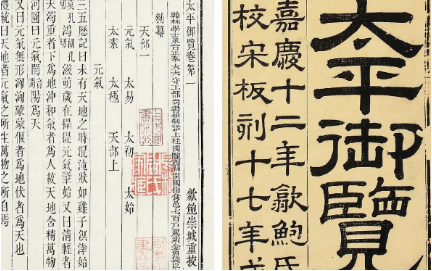 太平御覽
嘉慶十二年歙鮑氏
校宋板刻十七年成
太平御覽卷第一
歙鮑崇城重校
天部一
元氣 太易 太初 太始
太素 太極 天部上
元氣
三五歷記曰未有天地之時混沌狀如雞子溟涬始
牙濛鴻滋萌歲在攝提元氣肇始又曰清輕者
天濁重者下為地沖和氣者為人故天地含精萬物
河圖曰元氣闓陽為天
元氣無形洶洶蒙蒙偃者為地伏者為天也
禮統曰天地者元氣之所生萬物之所自焉